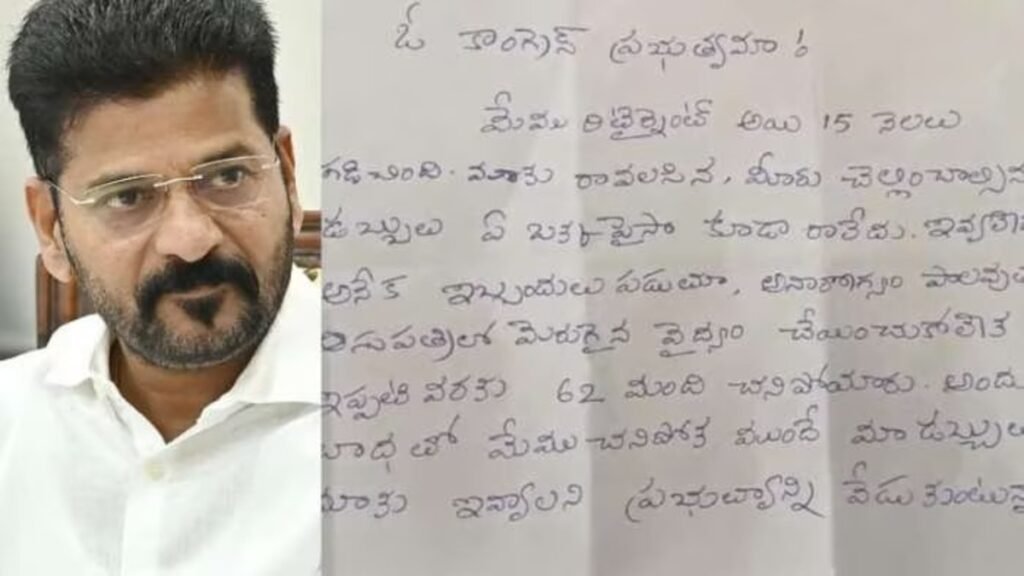 ఓ కాంగ్రెస్ ప్రభుత్వమా !
మేము రిటైర్మెంట్ అయి 15 నెలలు
గడిచింది. మాకు రావలసిన, మీరు చెల్లించాల్సిన
డబ్బులు ఏ ఒక్క పైసా కూడా రాలేదు.
అనేక ఇబ్బందులు పడుతూ, అనారోగ్యం పాలవుతూ
ఆసుపత్రిలో మెరుగైన వైద్యం చేయించుకోలేక
ఇప్పటి వరకు 62 మంది చనిపోయారు.
బాధతో మేము చనిపోక ముందే మా డబ్బులు
మాకు ఇవ్వాలని ప్రభుత్వాన్ని